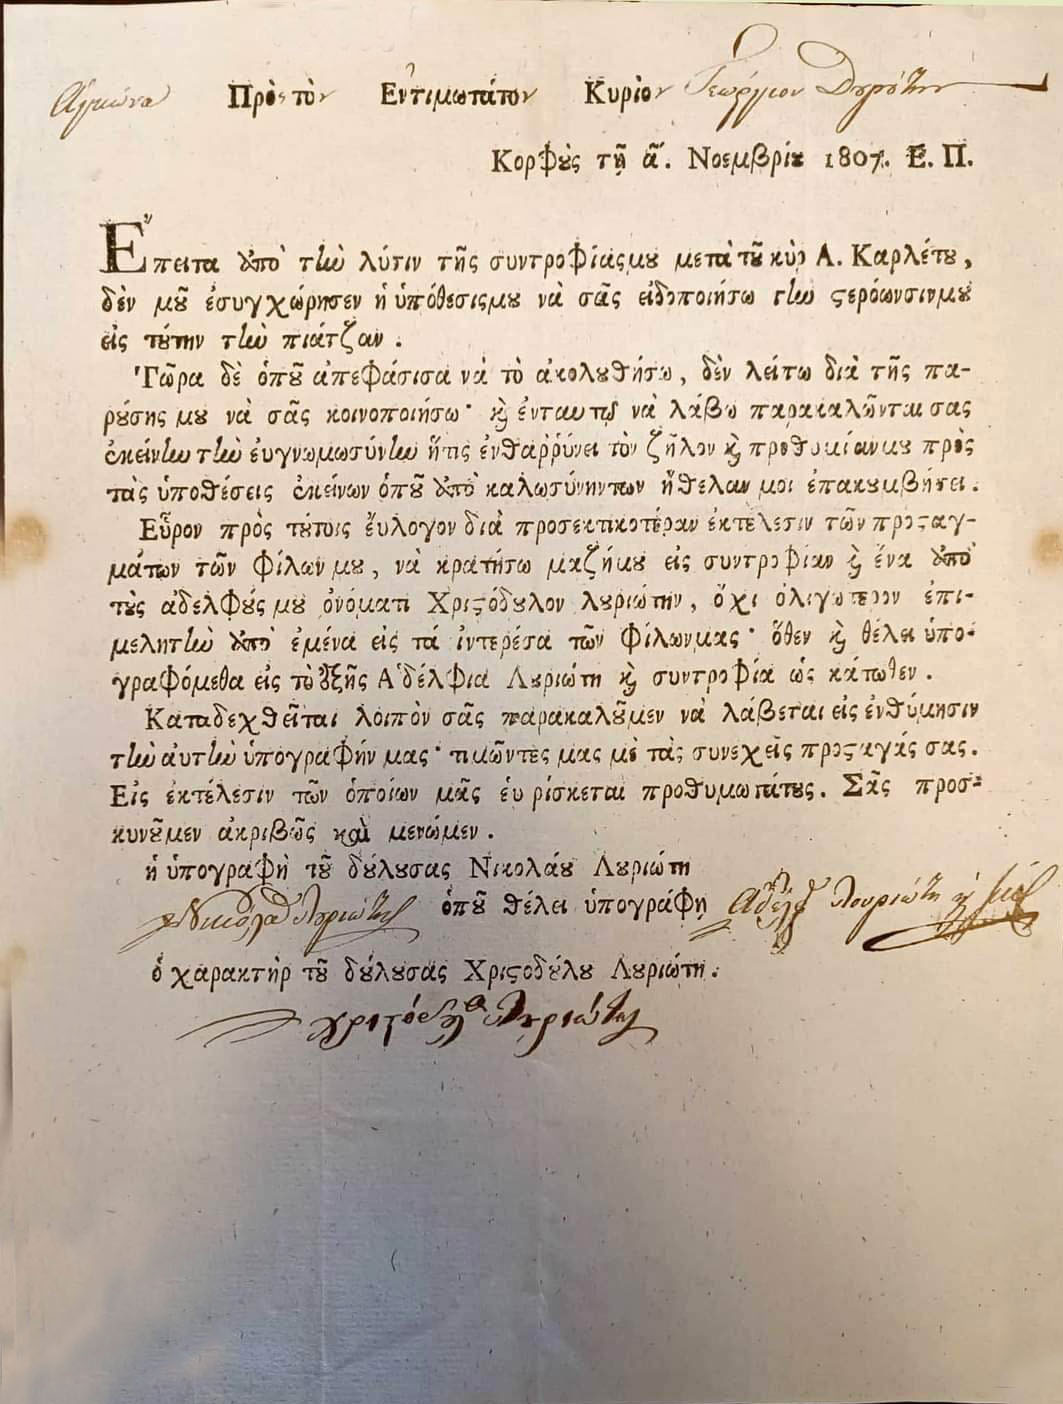 Ἀγκώνα Πρὸς τὸν Ἐντιμωτάτον Κυρίον Γεώργιον
Κορφȣ̀ς τῇ α῎. Νοεμβρίȣ 1807. Ε. Π.
Ἔπειτα ἀπὸ τὴν λύσιν τῆς συντροφίας μȣ μετὰ τȣ͂ κὺρ Α. Καρλέτȣ,
δὲν μȣ͂ ἐσυγχώρησεν ἡ ὑπόθεσις μȣ νὰ σᾶς εἰδοποιήσω τὴν ϛερέωνσιν μȣ
εἰς τȣ́την τὴν πιάτζαν.
Τῶρα δὲ ὁπȣ͂ ἀπεφάσισα νὰ τὸ ἀκολȣθήσω, δὲν λείπω διὰ τῆς πα-
ρȣ́σης μȣ νὰ σᾶς κοινοποιήσω· ϗ̀ ἐνταυτῷ νὰ λάβω παρακαλῶνται σας
ἐκείνην τὴν ἐυγνωμωσύνην ἥτις ἐνθαῤῥύνει τὸν ζῆλον ϗ̀ προθυμίαν μȣ πρὸς
τὰς ὑποθέσεις ἐκείνων ὁπȣ͂ ἀπὸ καλωσύνην των ἤθελαν μοι ἐπακȣμβήσει.
Εὗρον πρὸς τȣ́τοις ἔυλογον διὰ προσεκτικοτέραν ἐκτέλεσιν τῶν προϛαγ-
μάτων τῶν Φίλων μȣ, νὰ κρατήσω μαζή μȣ εἰς συντροφίαν ϗ̀ ἕνα ἀπὸ
τȣ̀ς ἀδελφȣ́ς μȣ ὀνόματι Χριϛόδȣλον Λȣριώτην, ὄχι ὀλιγώτερον ἐπι-
μελητὴν ἀπὸ ἐμένα εἰς τὰ ἰντερέσα τῶν Φίλων μας· ὅθεν ϗ̀ θέλει ὑπο-
γραφόμεθα εἰς τὸ ἑξῆς Ἀδέλφια Λȣριώτη ϗ̀ συντροφία ὡς κάτωθεν.
Καταδεχθεῖται λοιπὸν σᾶς παρακαλȣ͂μεν νὰ λάβεται εἰς ἐνθύμησιν
τὴν ἀυτὴν ὑπογραφήν μας· τιμῶντές μας μὲ τὰς συνεχεῖς προϛαγάς σας.
Εἰς ἐκτέλεσιν τῶν ὁποίων μᾶς ἑυρίσκεται προθυμωτάτȣς. Σᾶς προσ-
κυνȣ͂μεν ἀκριβῶς καὶ μενώμεν.
ἡ ὑπογραφὴ τȣ͂ δȣ́λȣ σας Νικολάȣ Λȣριώτη
Νικόλαος Λȣριώτης ὁπȣ͂ θέλει ὑπογράφῃ Ἀδέλφ Λουριώτη
ὁ χαρακτὴρ τȣ͂ δȣ́λȣ σας Χριϛοδȣ́λȣ Λȣριώτη.
Χριϛόδȣλος Λȣριώτης